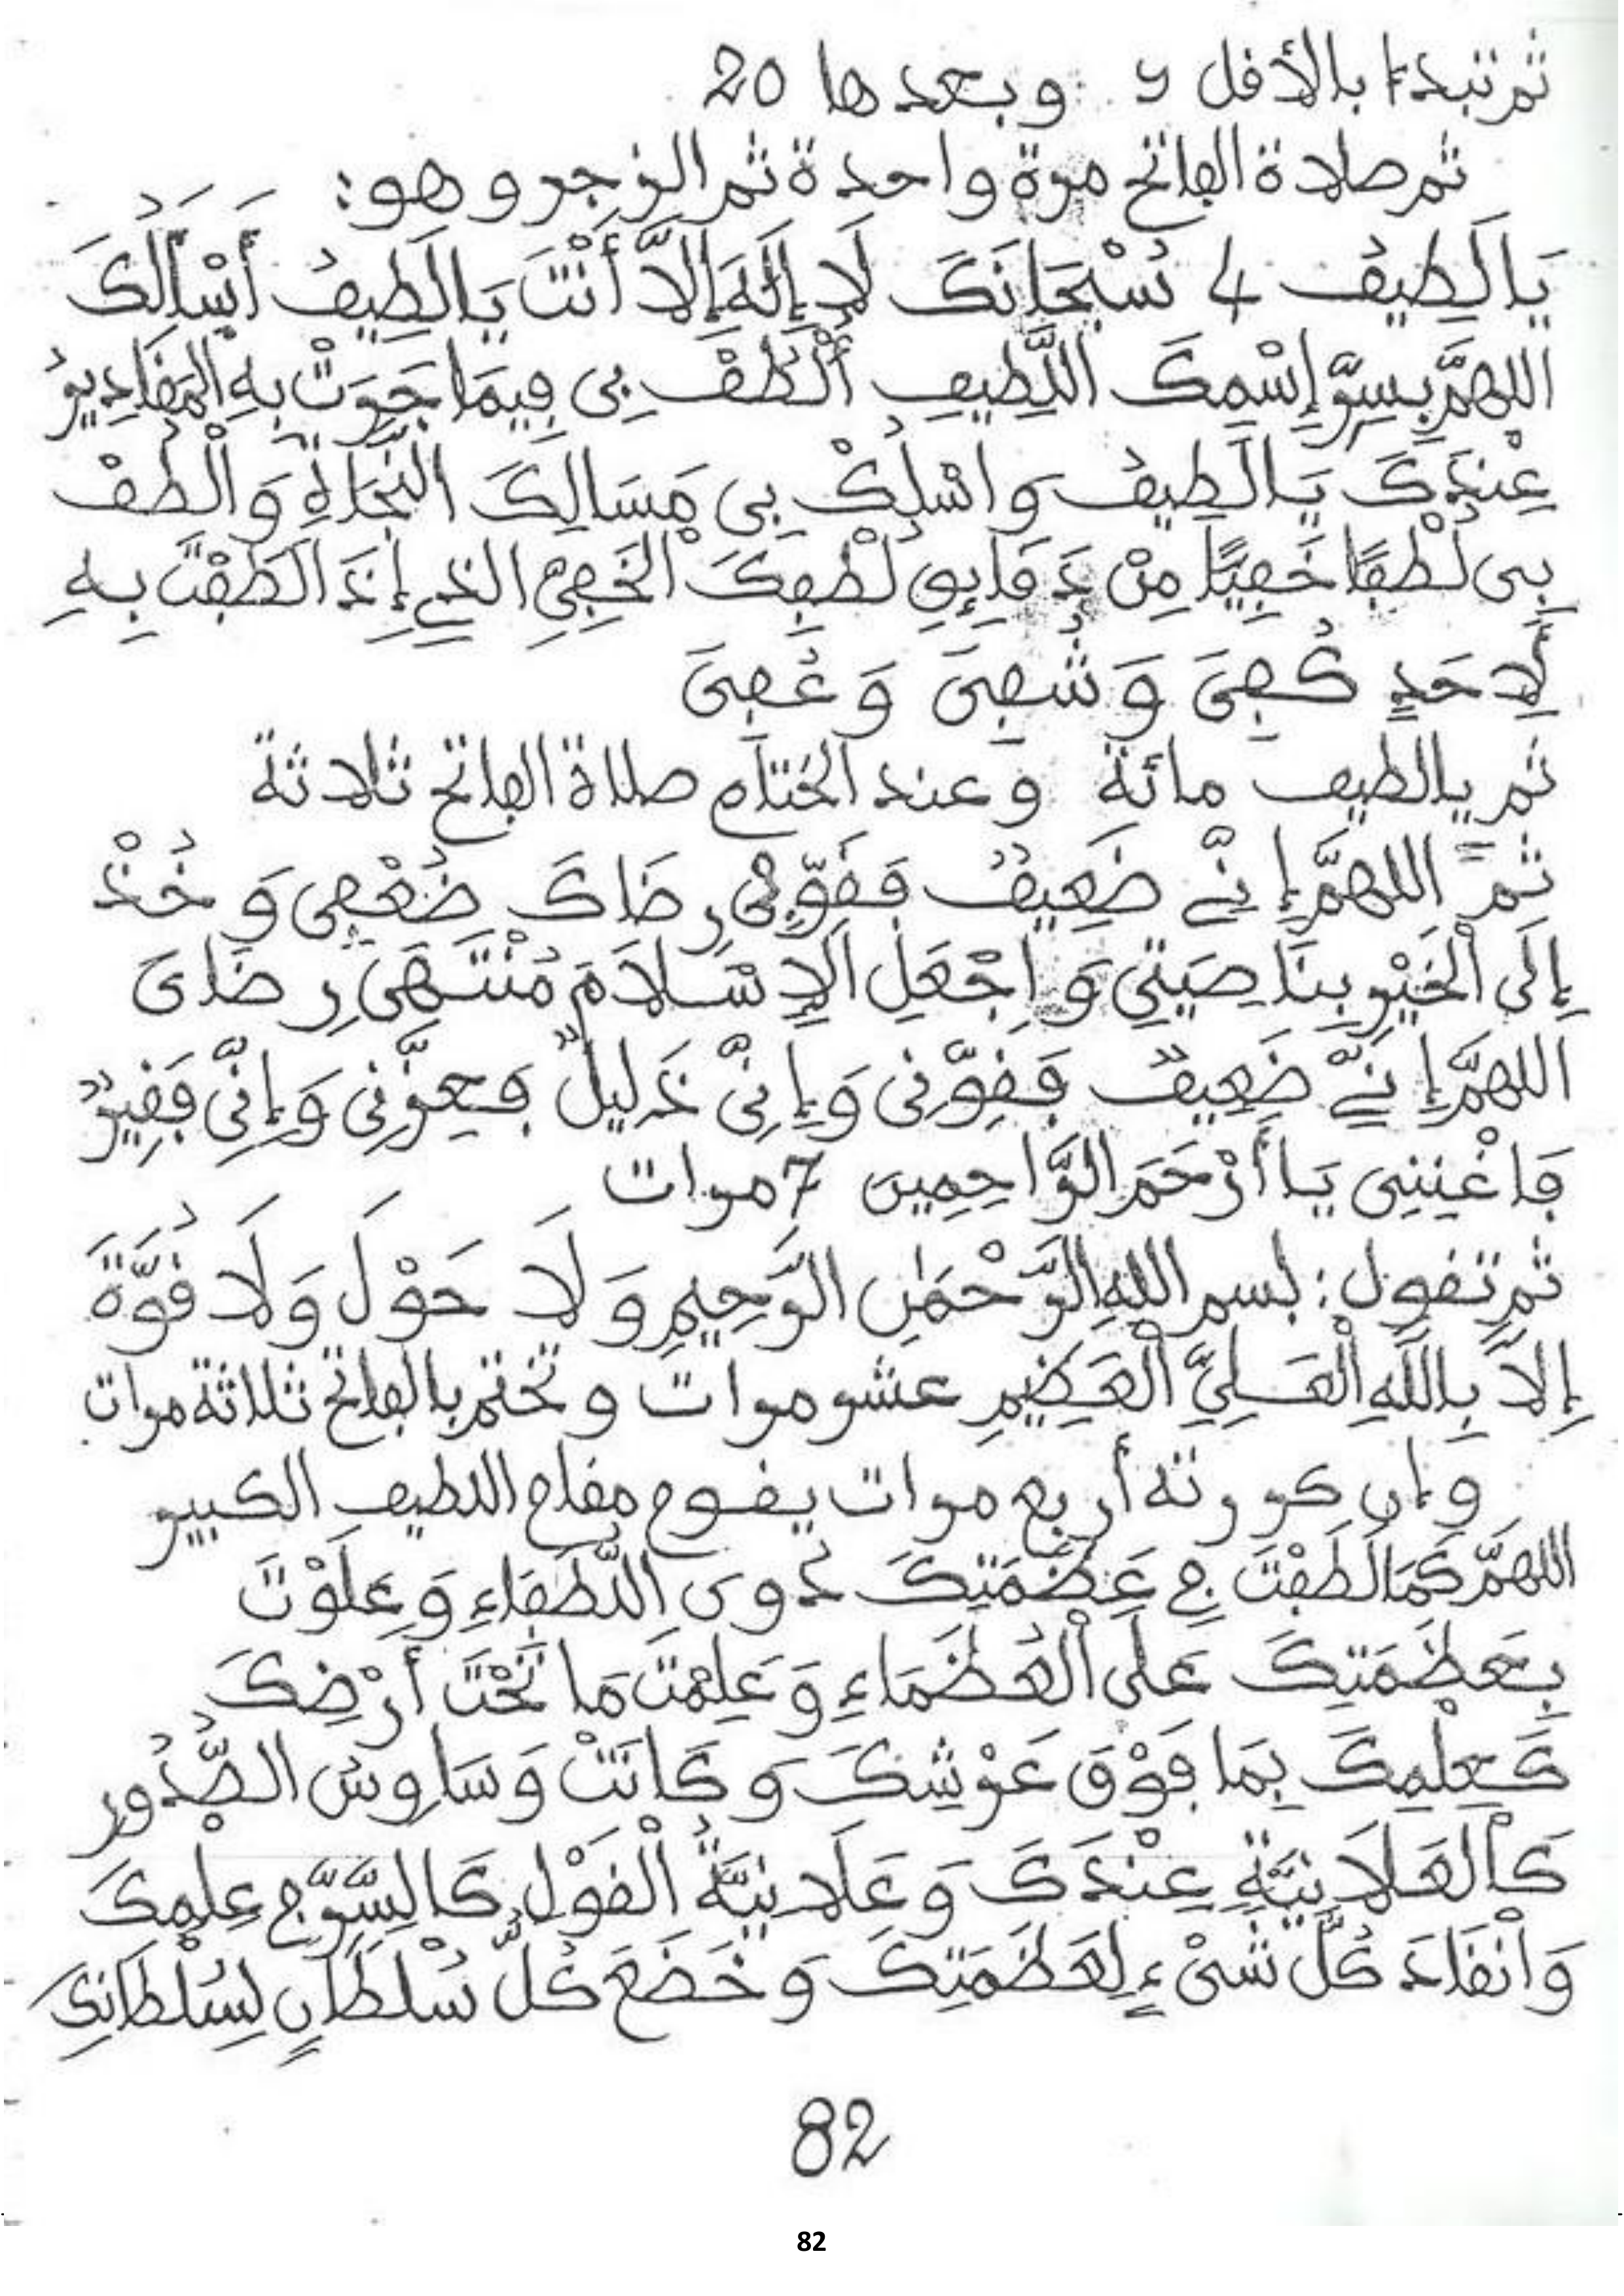 ثم تبدءا بالأقل و وبعدها 20
ثم صلاة الفاتح مرة واحدة ثم الزجر وهو:
يَا لَطِيفُ 4 سُبْحَانَكَ لَا إِلَهَ إِلَّا أَنْتَ يَا لَطِيفُ أَسْأَلُكَ
اللهمَّ بِسِرِّ إِسْمِكَ اللَّطِيفِ أُلْطُفْ بِي فِيمَا جَرَتْ بِهِ الْمَقَادِيرُ
عِنْدَكَ يَا لَطِيفُ وَاسْلُكْ بِي مَسَالِكَ النَّجَاةِ وَالْطُفْ
بِي لُطْفًا خَفِيًّا مِنْ دَقَايِقِ لُطْفِكَ الْخَفِيِّ الذِي إِذَا لَطَفْتَ بِهِ
لِأَحَدٍ كُفِيَ وَشُفِيَ وَعُفِيَ
ثم يا لطيف مائة وعند الختام صلاة الفاتح ثلاثة
ثمَّ اللهمَّ إِنِّي ضَعِيفٌ فَقَوِّ فِي رِضَاكَ ضُعْفِي وَخُذْ
إِلَى الْخَيْرِ بِنَاصِيَتِي وَاجْعَلِ الْإِسْلَامَ مُنْتَهَى رِضَاىَ
اللهمَّ إِنِّي ضَعِيفٌ فَقَوِّنِي وَإِنِّي ذَلِيلٌ فَعِزَّنِي وَإِنِّي فَقِيرٌ
فَاغْنِنِي يَا أَرْحَمَ الرَّاحِمِين 7 مرات
ثم تقول: بسم اللهِ الرَّحْمَنِ الرَّحِيمِ وَلَا حَوْلَ وَلَا قُوَّةَ
إِلَّا بِاللَّهِ الْعَلِيِّ الْعَظِيمِ عشر مرات وتختم بالفاتح ثلاثة مرات
وإن كررته أربع مرات يقوم مقام اللطيف الكبير
اللهمَّ كَمَا لَطَفْتَ فِي عَظَمَتِكَ دُونَ اللُّطَفَاءِ وَعَلَوْتَ
بِعَظَمَتِكَ عَلَى الْعُظَمَاءِ وَعَلِمْتَ مَا تَحْتَ أَرْضِكَ
كَعِلْمِكَ بِمَا فَوْقَ عَرْشِكَ وَكَانَتْ وَسَاوِسُ الصُّدُورِ
كَالْعَلَانِيَّةِ عِنْدَكَ وَعَلَانِيَّةُ الْقَوْلِ كَالسِّرِّ فِي عِلْمِكَ
وَانْقَادَ كُلُّ شَيْءٍ لِعَظَمَتِكَ وَخَضَعَ كُلُّ سُلْطَانٍ لِسُلْطَانِكَ
82
82